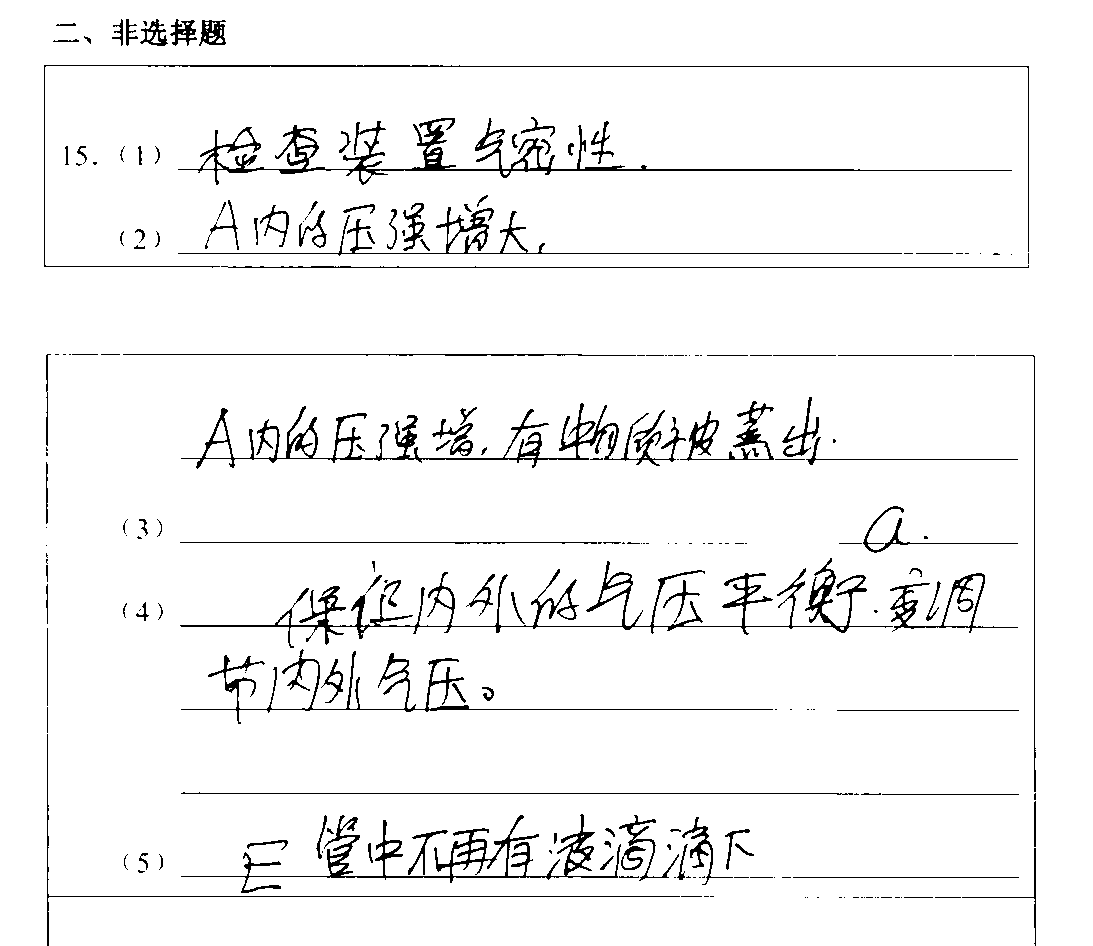 二、非选择题
15.（1）检查装置气密性.
（2）A内的压强增大,
A内的压强增,有物质被蒸出.
（3） a.
（4）保证内外的气压平衡.变调
节内外气压。
（5）E管中不再有液滴滴下